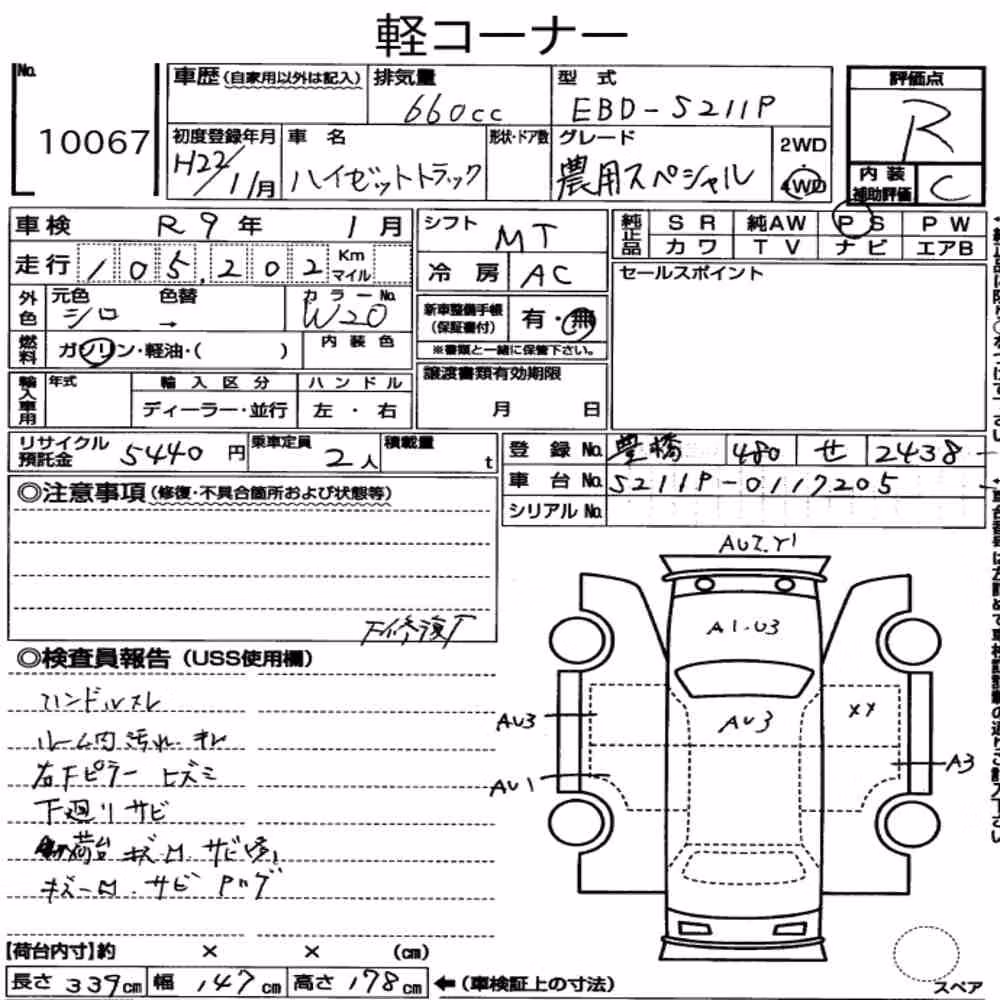 軽コーナー
No.
10067
車歴(自家用以外は記入)
排気量
660cc
型式
EBD-S211P
評価点
R
初度登録年月
H22/1月
車名
ハイゼットトラック
形状・ドア数
グレード
農用スペシャル
2WD
4WD
内装
補助評価
C
車検 R9年 1月
シフト
MT
純正品
SR 純AW PS PW
カワ TV ナビ エアB
走行 105,202 Km マイル
冷房 AC
セールスポイント
外色
元色 色替
シロ →
カラーNo.
W20
新車整備手帳
(保証書付)
有・無
※書類と一緒に保管下さい。
燃料
ガソリン・軽油・( )
内装色
輸入車用
年式
輸入区分
ハンドル
ディーラー・並行
左・右
譲渡書類有効期限
月 日
リサイクル
預託金
5440円
乗車定員
2人
積載量
t
登録No. 豊橋 480 せ 2438
車台No. S211P-0117205
シリアルNo.
◎注意事項(修復・不具合箇所および状態等)
下修復有
AUZ.Y1
A1.U3
AU3
AU3
XX
A3
AU1
◎検査員報告(USS使用欄)
ハンドルスレ
ルーム内汚れ.キレ
右下ピラー ヒズミ
下廻りサビ
荷台 キズ凹.サビ
キズ凹.サビ Pログ
【荷台内寸】約 × × (cm)
長さ339cm 幅147cm 高さ178cm ←(車検証上の寸法)
スペア